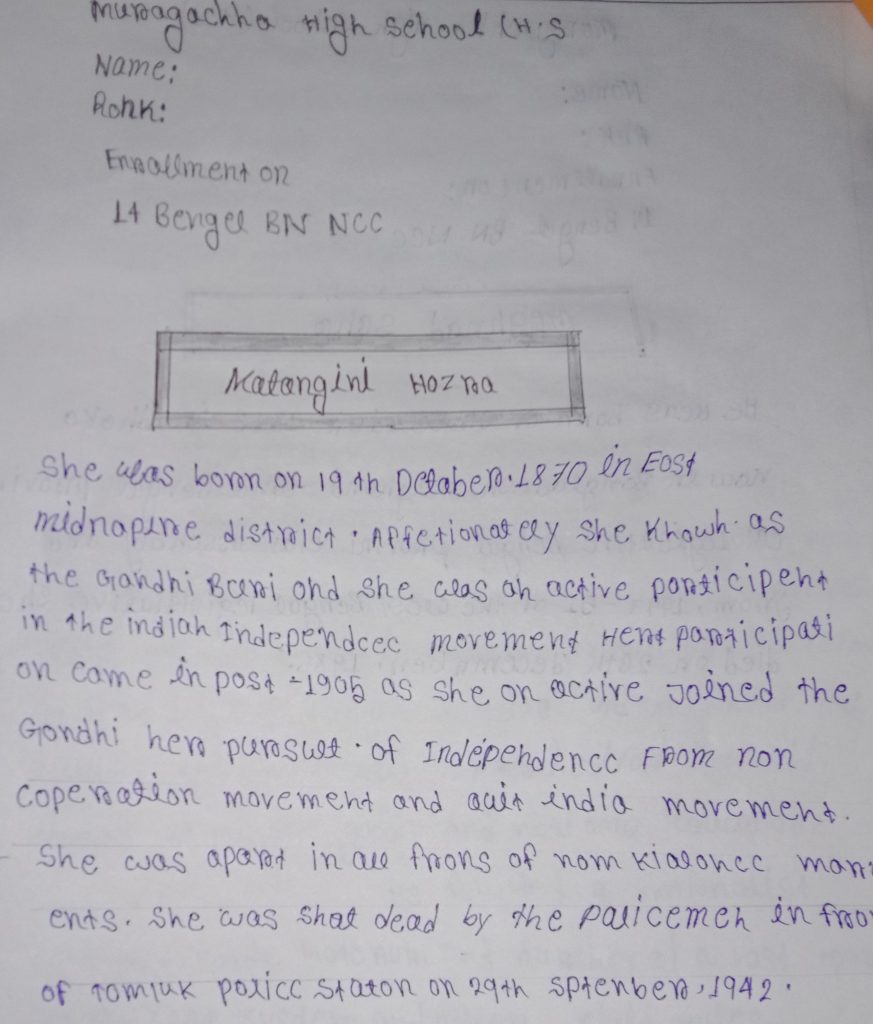 Muragachha High school (H.S
Name:
Rohk:
Enrollment on
14 Bengel BN NCC
Matangini Hozra
She was born on 19 th Octaber. 1870 in East
midnapure district. Affetionately she Khowh as
the Gandhi Buri ond she was ah active participeht
in the indiah Independcec movement Hent participati
on came in post -1905 as she on active Joined the
Gondhi her pursuet. of Independencc From non
coperation movemeht and quit india movement.
She was apart in all frons of nom kialoncc man
ents. She was shat dead by the paliceman in fro
of Tomluk policc Staton on 29th Sptenber, 1942.